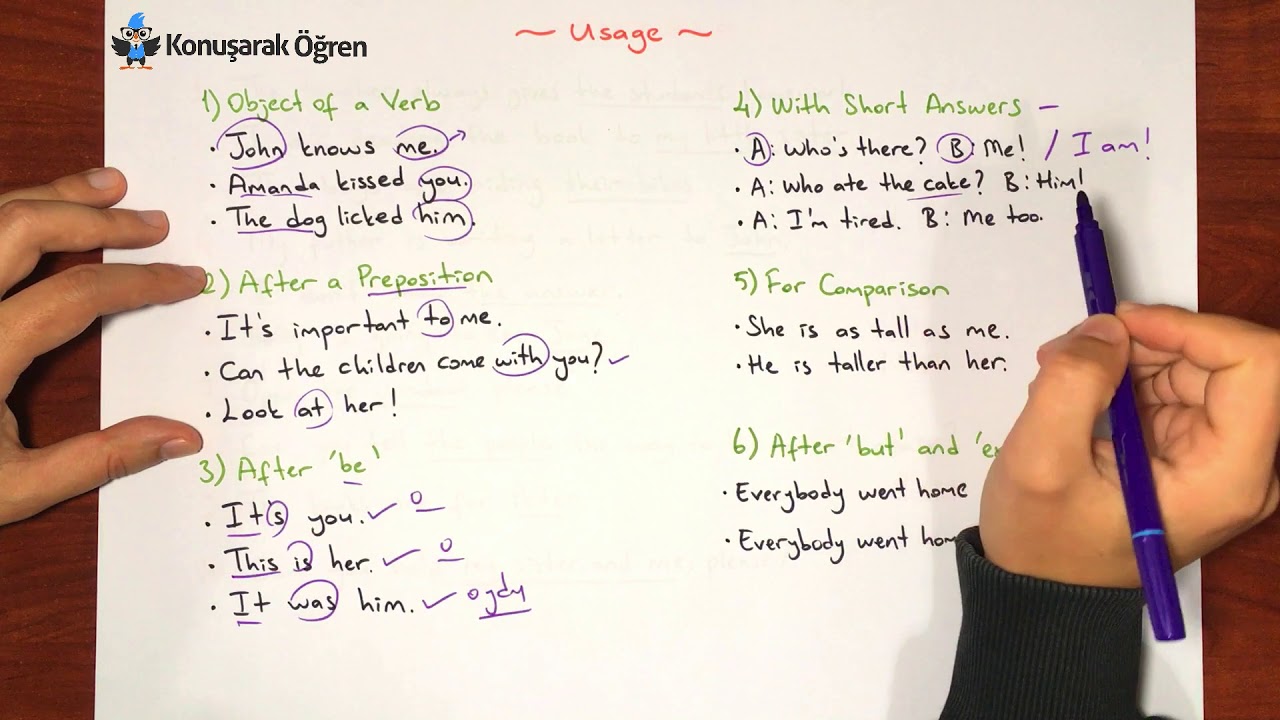 Konuşarak Öğren
~ Usage ~
1) Object of a Verb
• John knows me.
• Amanda kissed you.
• The dog licked him.
2) After a Preposition
• It's important to me.
• Can the children come with you?
• Look at her!
3) After 'be'
• It's you. o
• This is her. o
• It was him. oydu
4) With Short Answers –
• A: Who's there? B: Me! / I am!
• A: Who ate the cake? B: Him!
• A: I'm tired. B: Me too.
5) For Comparison
• She is as tall as me.
• He is taller than her.
6) After 'but' and
• Everybody went home
• Everybody went